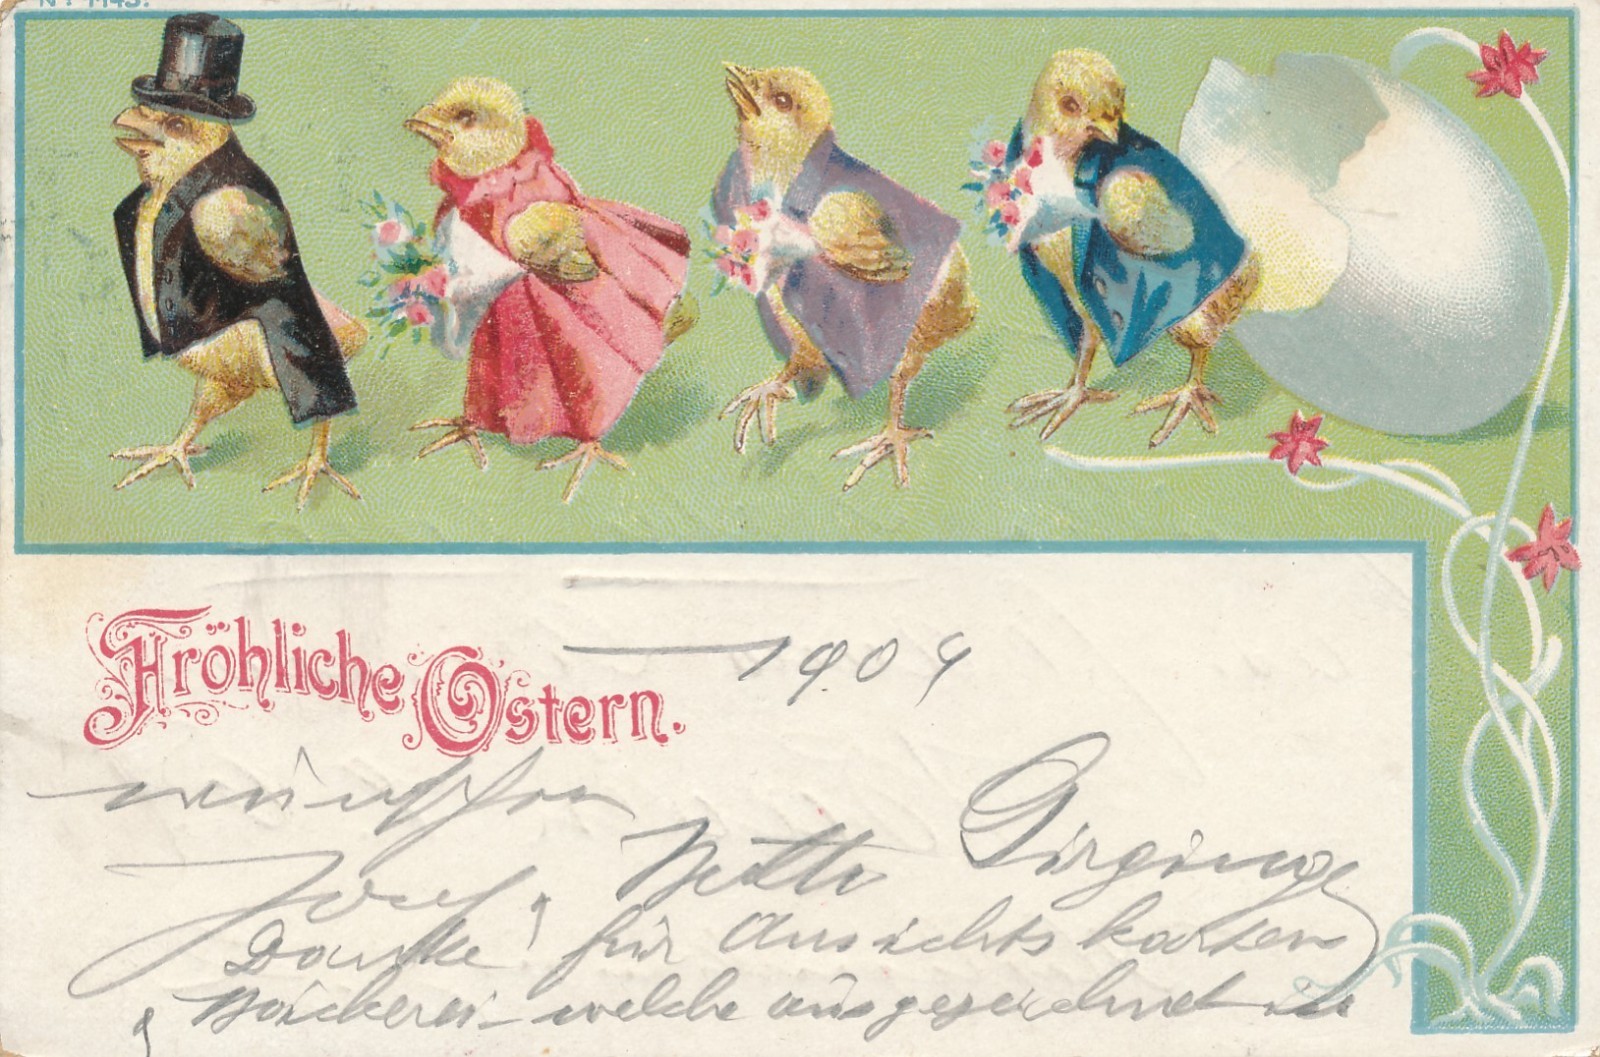 Nº 1143.
Fröhliche Ostern. 1904
wünschen
Josef, Netti
Danke! für Ansichtskarten
Bäckerei – welche ausgezeichnet ist